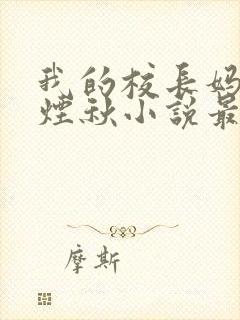 我的校長媽
煙秋小說最
摩斯